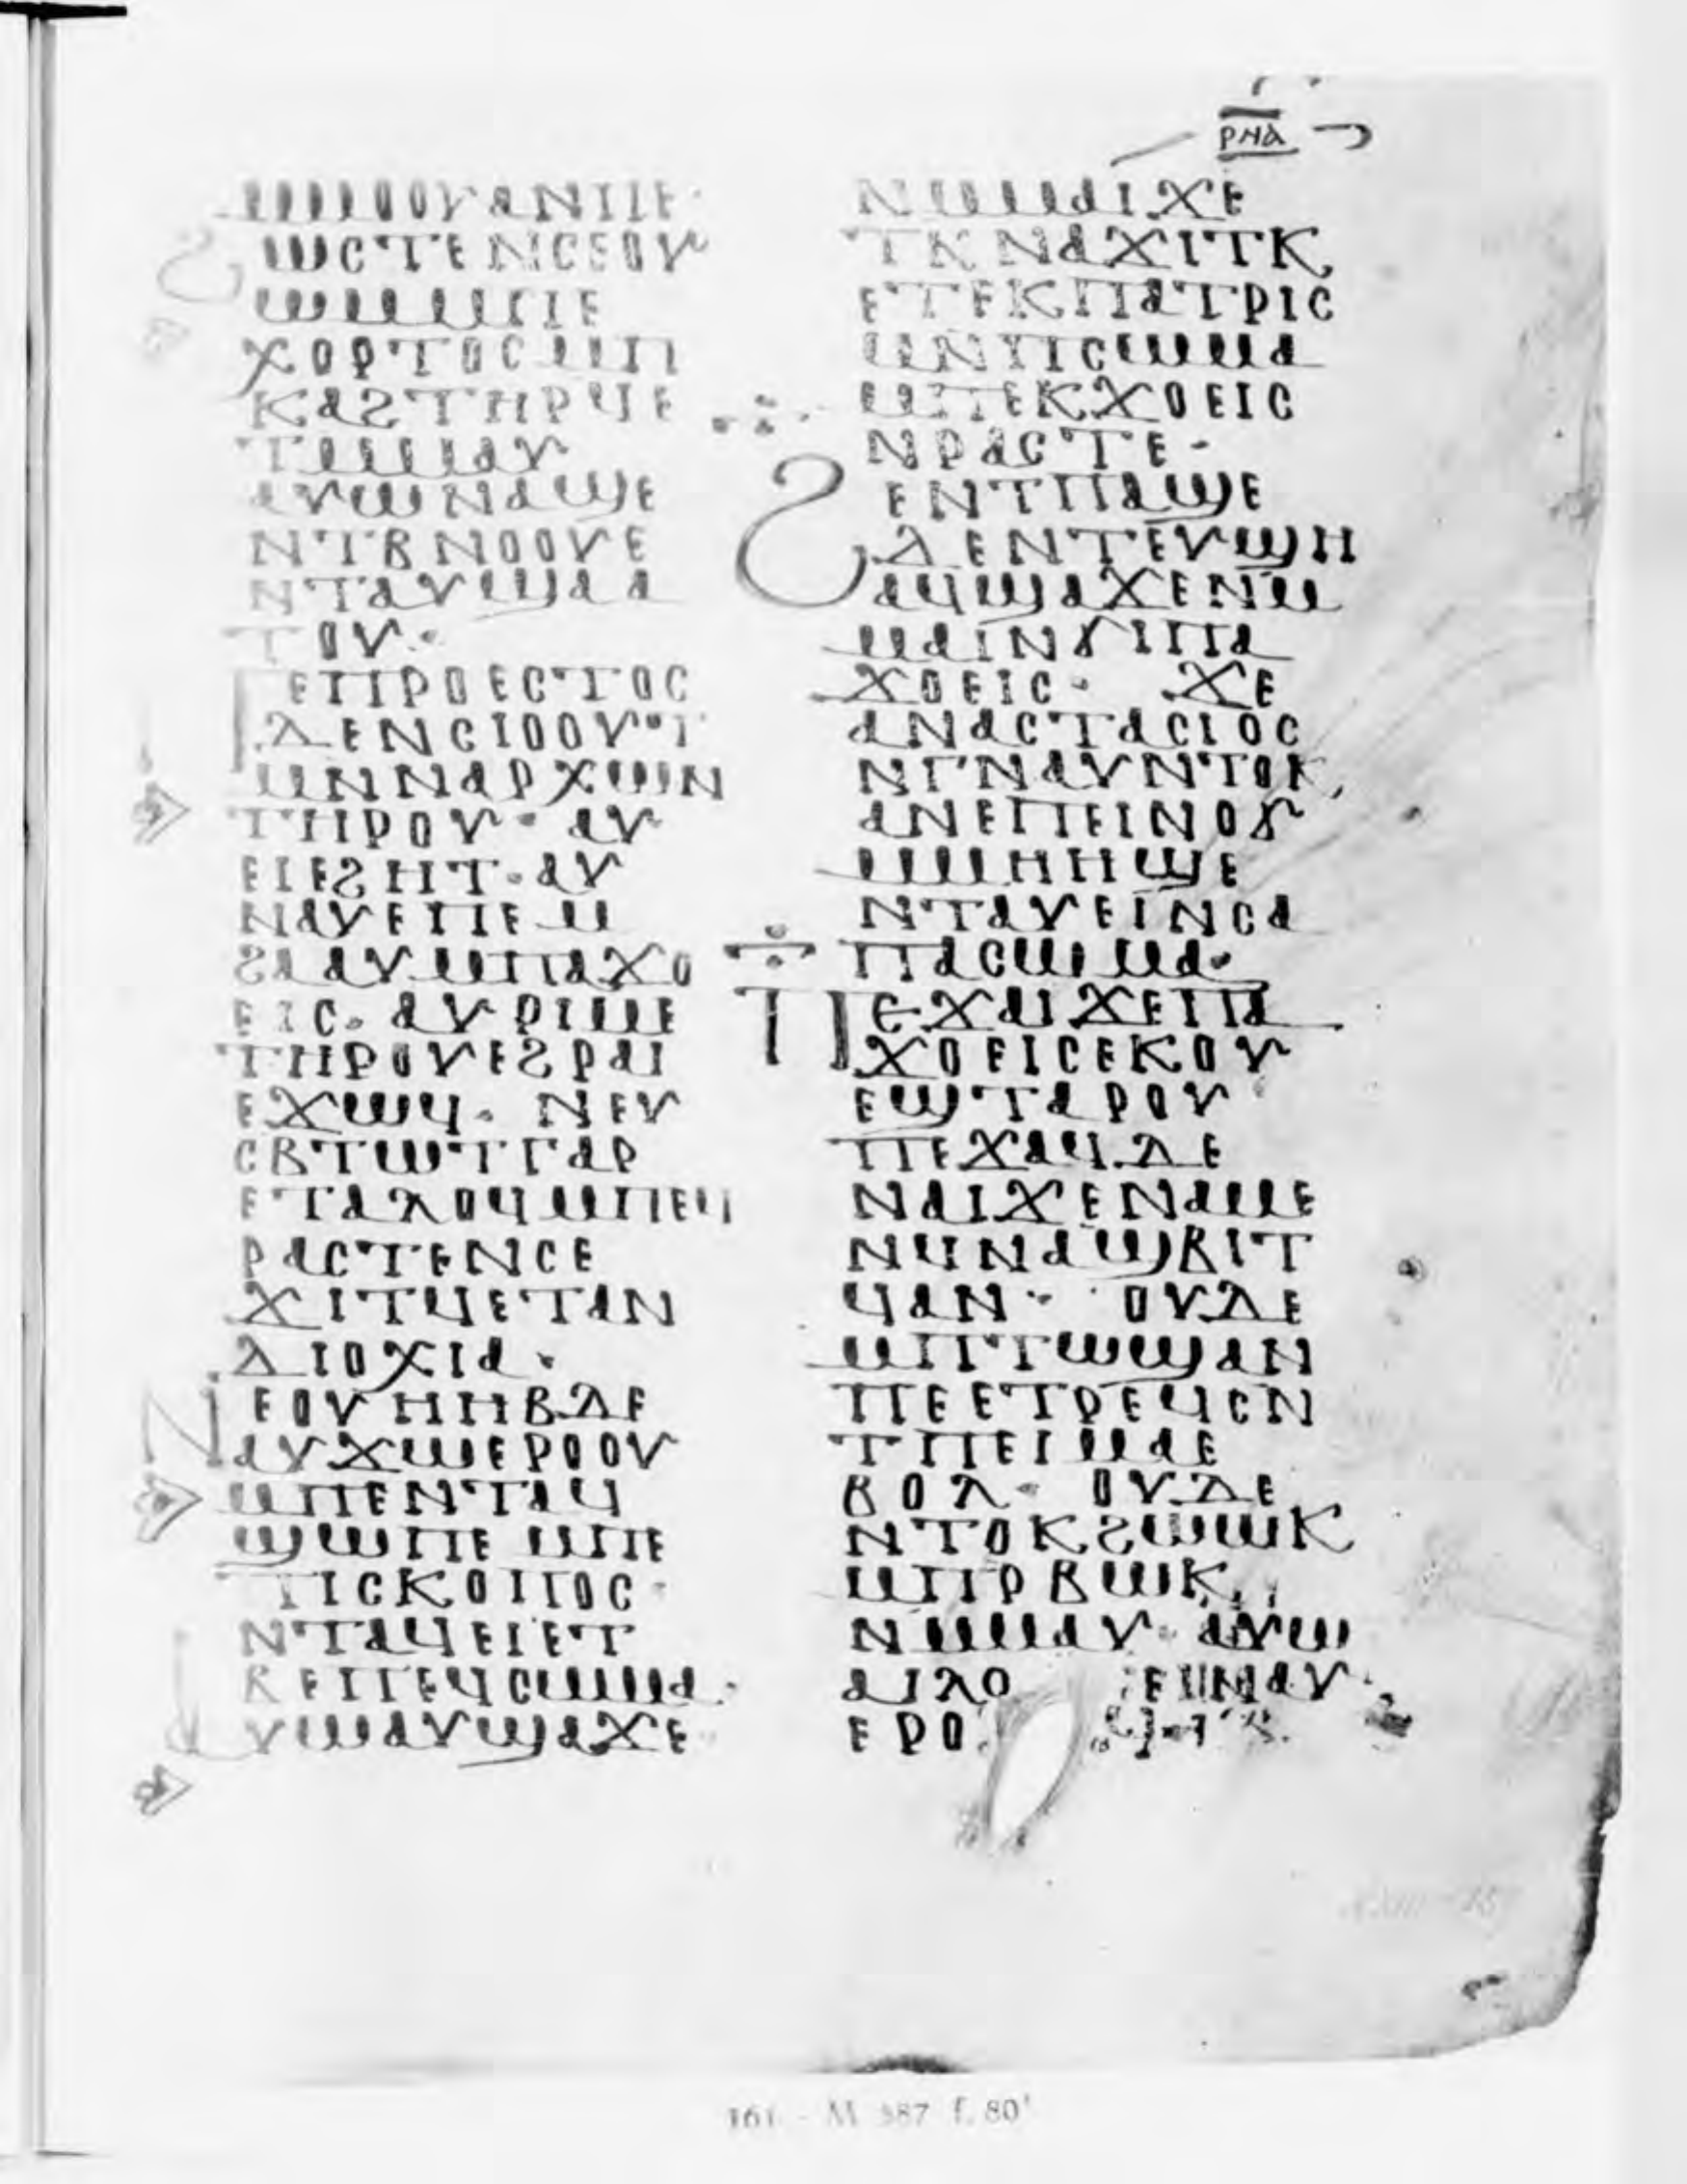 ⲣⲛⲁ
ⲙⲙⲟⲟⲩ ⲁⲛⲡⲉ·
ϩⲱⲥⲧⲉ ⲛⲥⲉⲟⲩ
ⲱⲙ ⲙⲡⲉ
ⲭⲟⲣⲧⲟⲥ ⲙⲡ
ⲕⲁϩ ⲧⲏⲣϥ ⲉ
ⲧⲙⲙⲁⲩ
ⲁⲩⲱ ⲛⲁϣⲉ
ⲛⲧⲃⲛⲟⲟⲩⲉ
ⲛⲧⲁⲩϣⲁⲁ
ⲧⲟⲩ·
ⲡⲉⲡⲣⲟⲉⲥⲧⲟⲥ
ⲇⲉ ⲛⲥⲓⲟⲟⲩⲧ
ⲙⲛ ⲛⲁⲣⲭⲱⲛ
ⲧⲏⲣⲟⲩ· ⲁⲩ
ⲉⲓ ⲉϩⲏⲧ· ⲁⲩ
ⲛⲁⲩ ⲉⲡⲉⲙ
ϩⲁⲁⲩ ⲙⲡⲁϫⲟ
ⲉⲓⲥ· ⲁⲩⲣⲓⲙⲉ
ⲧⲏⲣⲟⲩ ⲉϩⲣⲁⲓ
ⲉϫⲱϥ· ⲛⲉⲩ
ⲥⲃⲧⲱⲧ ⲅⲁⲣ
ⲉⲧⲁⲗⲟϥ ⲙⲡⲉϥ
ⲣⲁⲥⲧⲉ ⲛⲥⲉ
ϫⲓⲧϥ ⲉⲧⲁⲛ
ⲇⲓⲟⲭⲓⲁ·
ⲛⲉⲟⲩⲏⲏⲃ ⲇⲉ
ⲁⲩϫⲱ ⲉⲣⲟⲟⲩ
ⲙⲡⲉⲛⲧⲁϥ
ϣⲱⲡⲉ ⲙⲡⲉ
ⲡⲓⲥⲕⲟⲡⲟⲥ·
ⲛⲧⲁϥⲉⲓ ⲉⲧ
ⲃⲉ ⲡⲉϥⲥⲱⲙⲁ·
ⲁⲩⲱ ⲁⲩϣⲁϫⲉ
ⲛⲙⲙⲁⲓ ϫⲉ
ⲧⲛⲛⲁϫⲓⲧⲕ
ⲉⲧⲉⲕⲡⲁⲧⲣⲓⲥ
ⲙⲛ ⲡⲥⲱⲙⲁ
ⲙⲡⲉⲕϫⲟⲉⲓⲥ
ⲛⲣⲁⲥⲧⲉ·
ϩⲉⲛ ⲧⲡⲁϣⲉ
ⲇⲉ ⲛⲧⲉⲩϣⲏ
ⲁϥϣⲁϫⲉ ⲛⲙ
ⲙⲁⲓ ⲛϭⲓ ⲡⲁ
ϫⲟⲉⲓⲥ· ϫⲉ
ⲁⲛⲁⲥⲧⲁⲥⲓⲟⲥ
ⲛⲅⲛⲁⲩ ⲛⲧⲟⲕ
ⲁⲛ ⲉⲡⲉⲓⲛⲟϭ
ⲙⲙⲏⲏϣⲉ
ⲛⲧⲁⲩⲉⲓ ⲛⲥⲁ
ⲡⲁⲥⲱⲙⲁ·
ⲡⲉϫⲁⲓ ϫⲉ ⲡⲁ
ϫⲟⲉⲓⲥ ⲉⲕⲟⲩ
ⲉϣ ⲧⲁⲣⲟⲩ
ⲡⲉϫⲁϥ ⲇⲉ
ⲛⲁⲓ ϫⲉ ⲛⲁⲙⲉ
ⲛϥⲛⲁϣ ⲃⲓⲧ
ϥ ⲁⲛ· ⲟⲩⲇⲉ
ⲙⲡⲧⲱϣ ⲁⲛ
ⲡⲉ ⲉⲧⲣⲉϥⲥⲛ
ⲧ ⲡⲉⲓⲙⲁ ⲉ
ⲃⲟⲗ· ⲟⲩⲇⲉ
ⲛⲧⲟⲕ ϩⲱⲱⲕ
ⲙⲡⲣⲃⲱⲕ
ⲛⲙⲙⲁⲩ· ⲁⲩⲱ
ⲁⲓⲗⲟ ⲉⲓⲛⲁⲩ
ⲉⲣⲟ